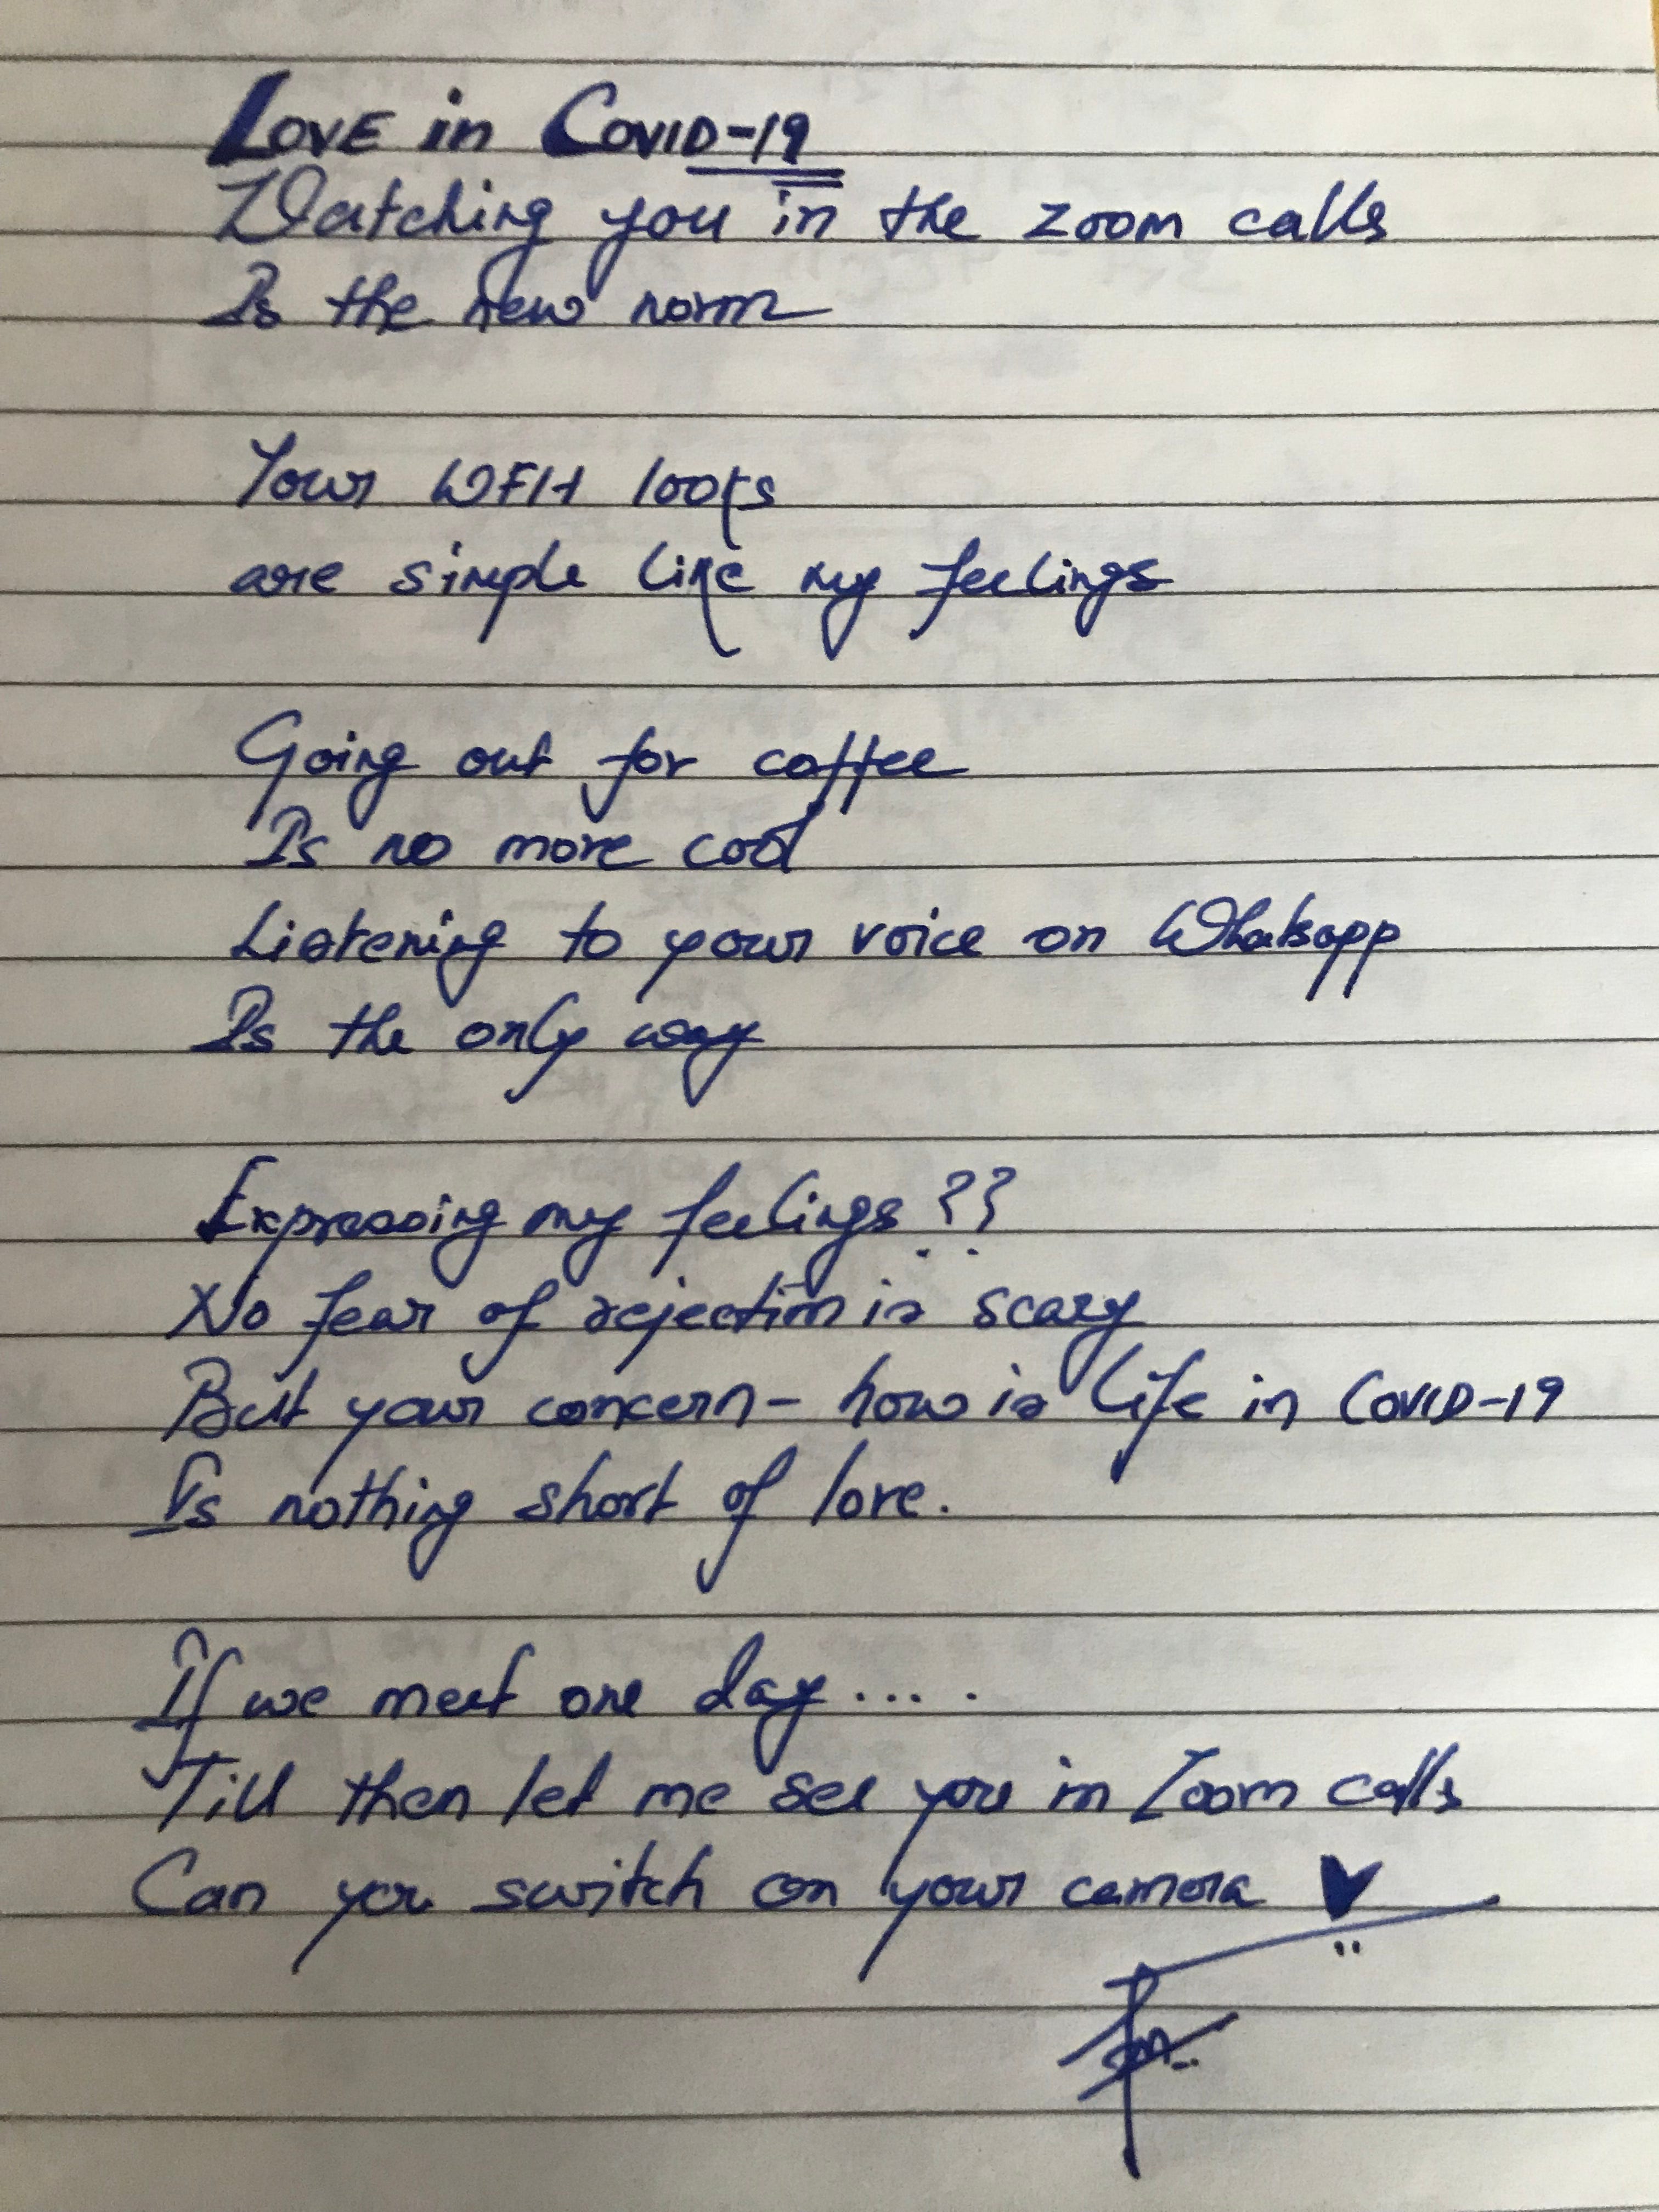 LOVE in COVID-19
Watching you in the zoom calls
Is the new norm
Your WFH looks
are simple like my feelings
Going out for coffee
Is no more cool
Listening to your voice on Whatsapp
Is the only way
Expressing my feelings ??
No fear of rejection is scary
But your concern - how is life in COVID-19
Is nothing short of love.
If we meet one day .... .
Till then let me see you in Zoom calls
Can you switch on your camera ♥